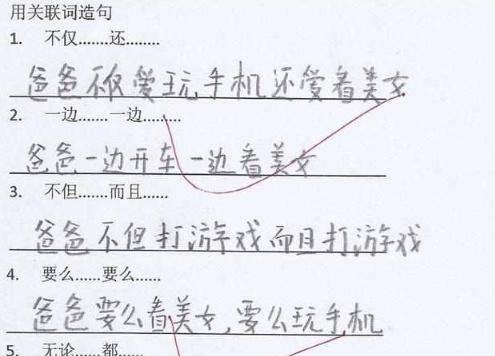 用关联词造句
1. 不仅.......还........
爸爸不仅爱玩手机还爱看美女
2. 一边.......一边.........
爸爸一边开车一边看美女
3. 不但.......而且......
爸爸不但打游戏而且打游戏
4. 要么......要么......
爸爸要么看美女,要么玩手机
5. 无论......都......